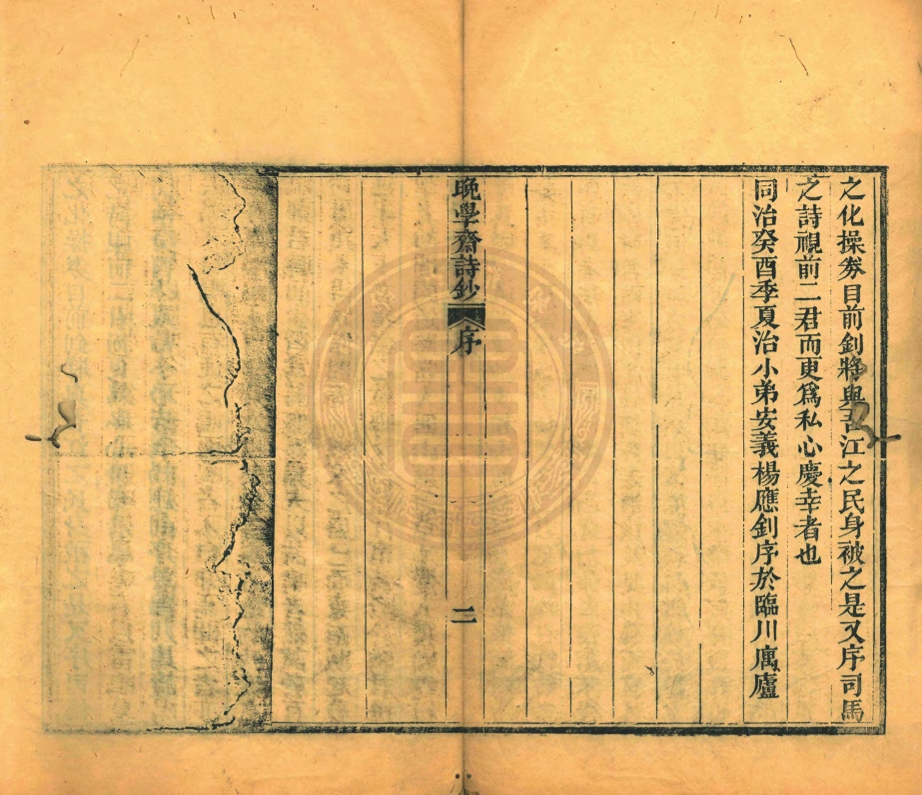 之化操券目前釗將與吾江之民身被之是又序司馬
之詩視前二君而更爲私心慶幸者也
同治癸酉季夏治小弟安義楊應釗序於臨川寓廬
晚學齋詩鈔 序 二